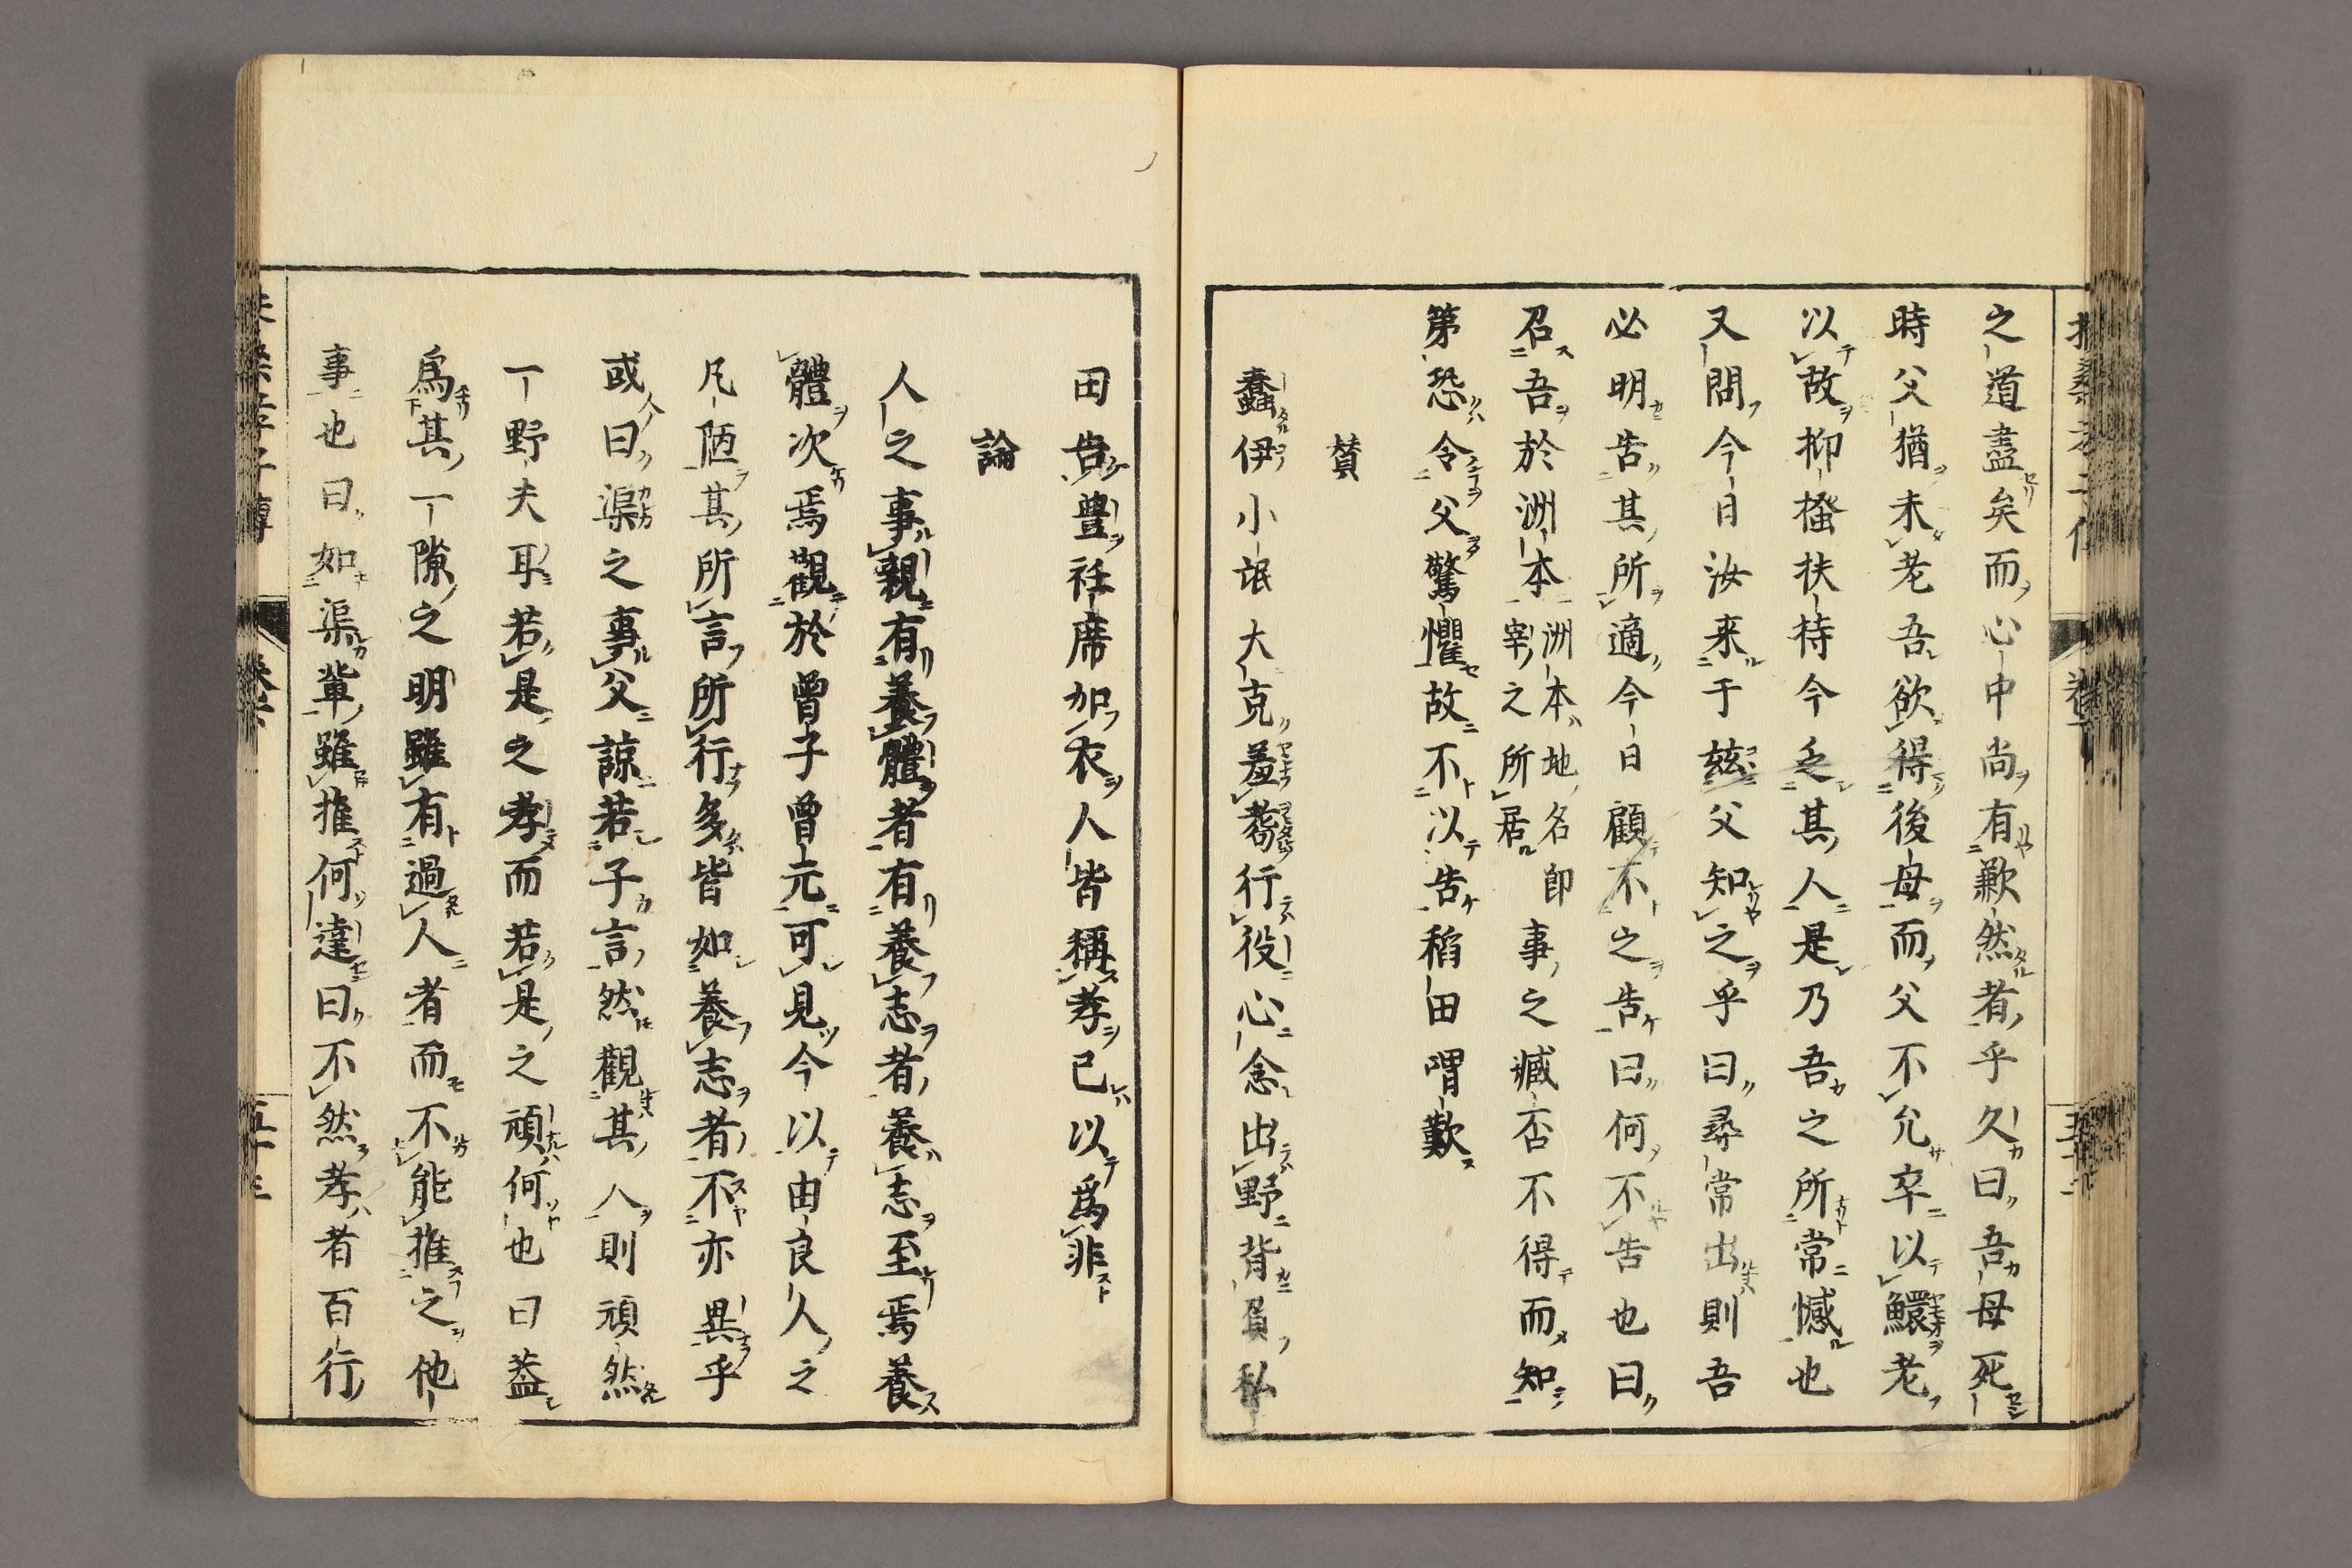 之道盡矣而心中尚有歉然者乎久曰吾母死
時父猶未老吾欲得後母而父不允卒以鰥老
以故抑搔扶持今乏其人是乃吾之所常憾也
又問今日汝来于茲父知之乎曰尋常出則吾
必明告其所適今日顧不之告曰何不告也曰
召吾於洲本洲本地名即宰之所居事之臧否不得而知
第恐令父驚懼故不以告稻田喟歎
賛
蠢伊小氓大克羞耈行役心念出野背負私
田告豊衽席加衣人皆稱孝已以爲非
論
人之事親有養體者有養志者養志至焉養
體次焉觀於曾子曾元可見今以由良人之
凡陋其所言所行多皆如養志者不亦異乎
或曰渠之事父諒若子言然觀其人則頑然
一野夫耳若是之孝而若是之頑何也曰葢
爲其一隙之明雖有過人者而不能推之他
事也曰如渠軰雖推何達曰不然孝者百行